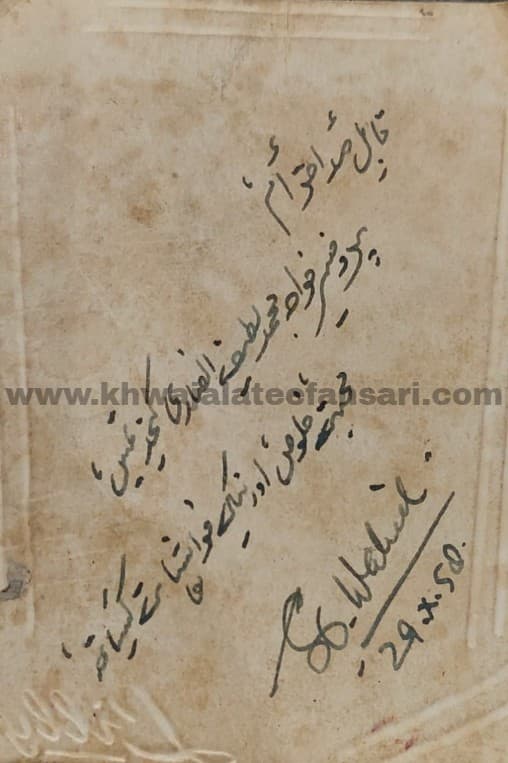 قابل صد احترام
پروفیسر خواجہ محمد لطیف انصاری کی خدمت میں
محبت، خلوص اور نیک خواہشات کیساتھ
www.khwajalateefansari.com
S. Wahid
29.X.58.